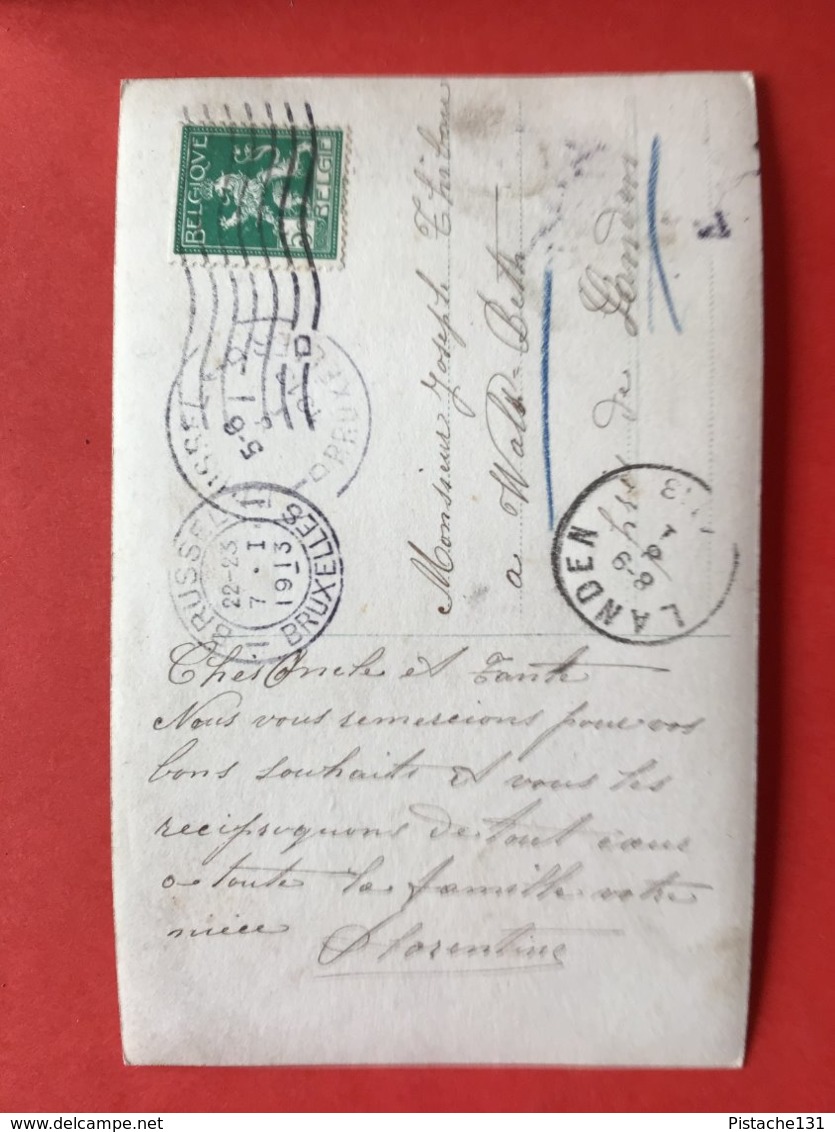 BELGIQUE
BELGIË
5
BRUSSEL
5-6
1913
BRUXELLES
BRUSSEL
22-23
7.I
1913
BRUXELLES
Monsieur Joseph
a Wals-Beth
de Landen
LANDEN
8-9
Chers Oncle et Tante
Nous vous remercions pour vos
bons souhaits et vous les
reciproquons de tout cœur
a toute la famille votre
nièce Florentine
www.delcampe.net
Pistache131